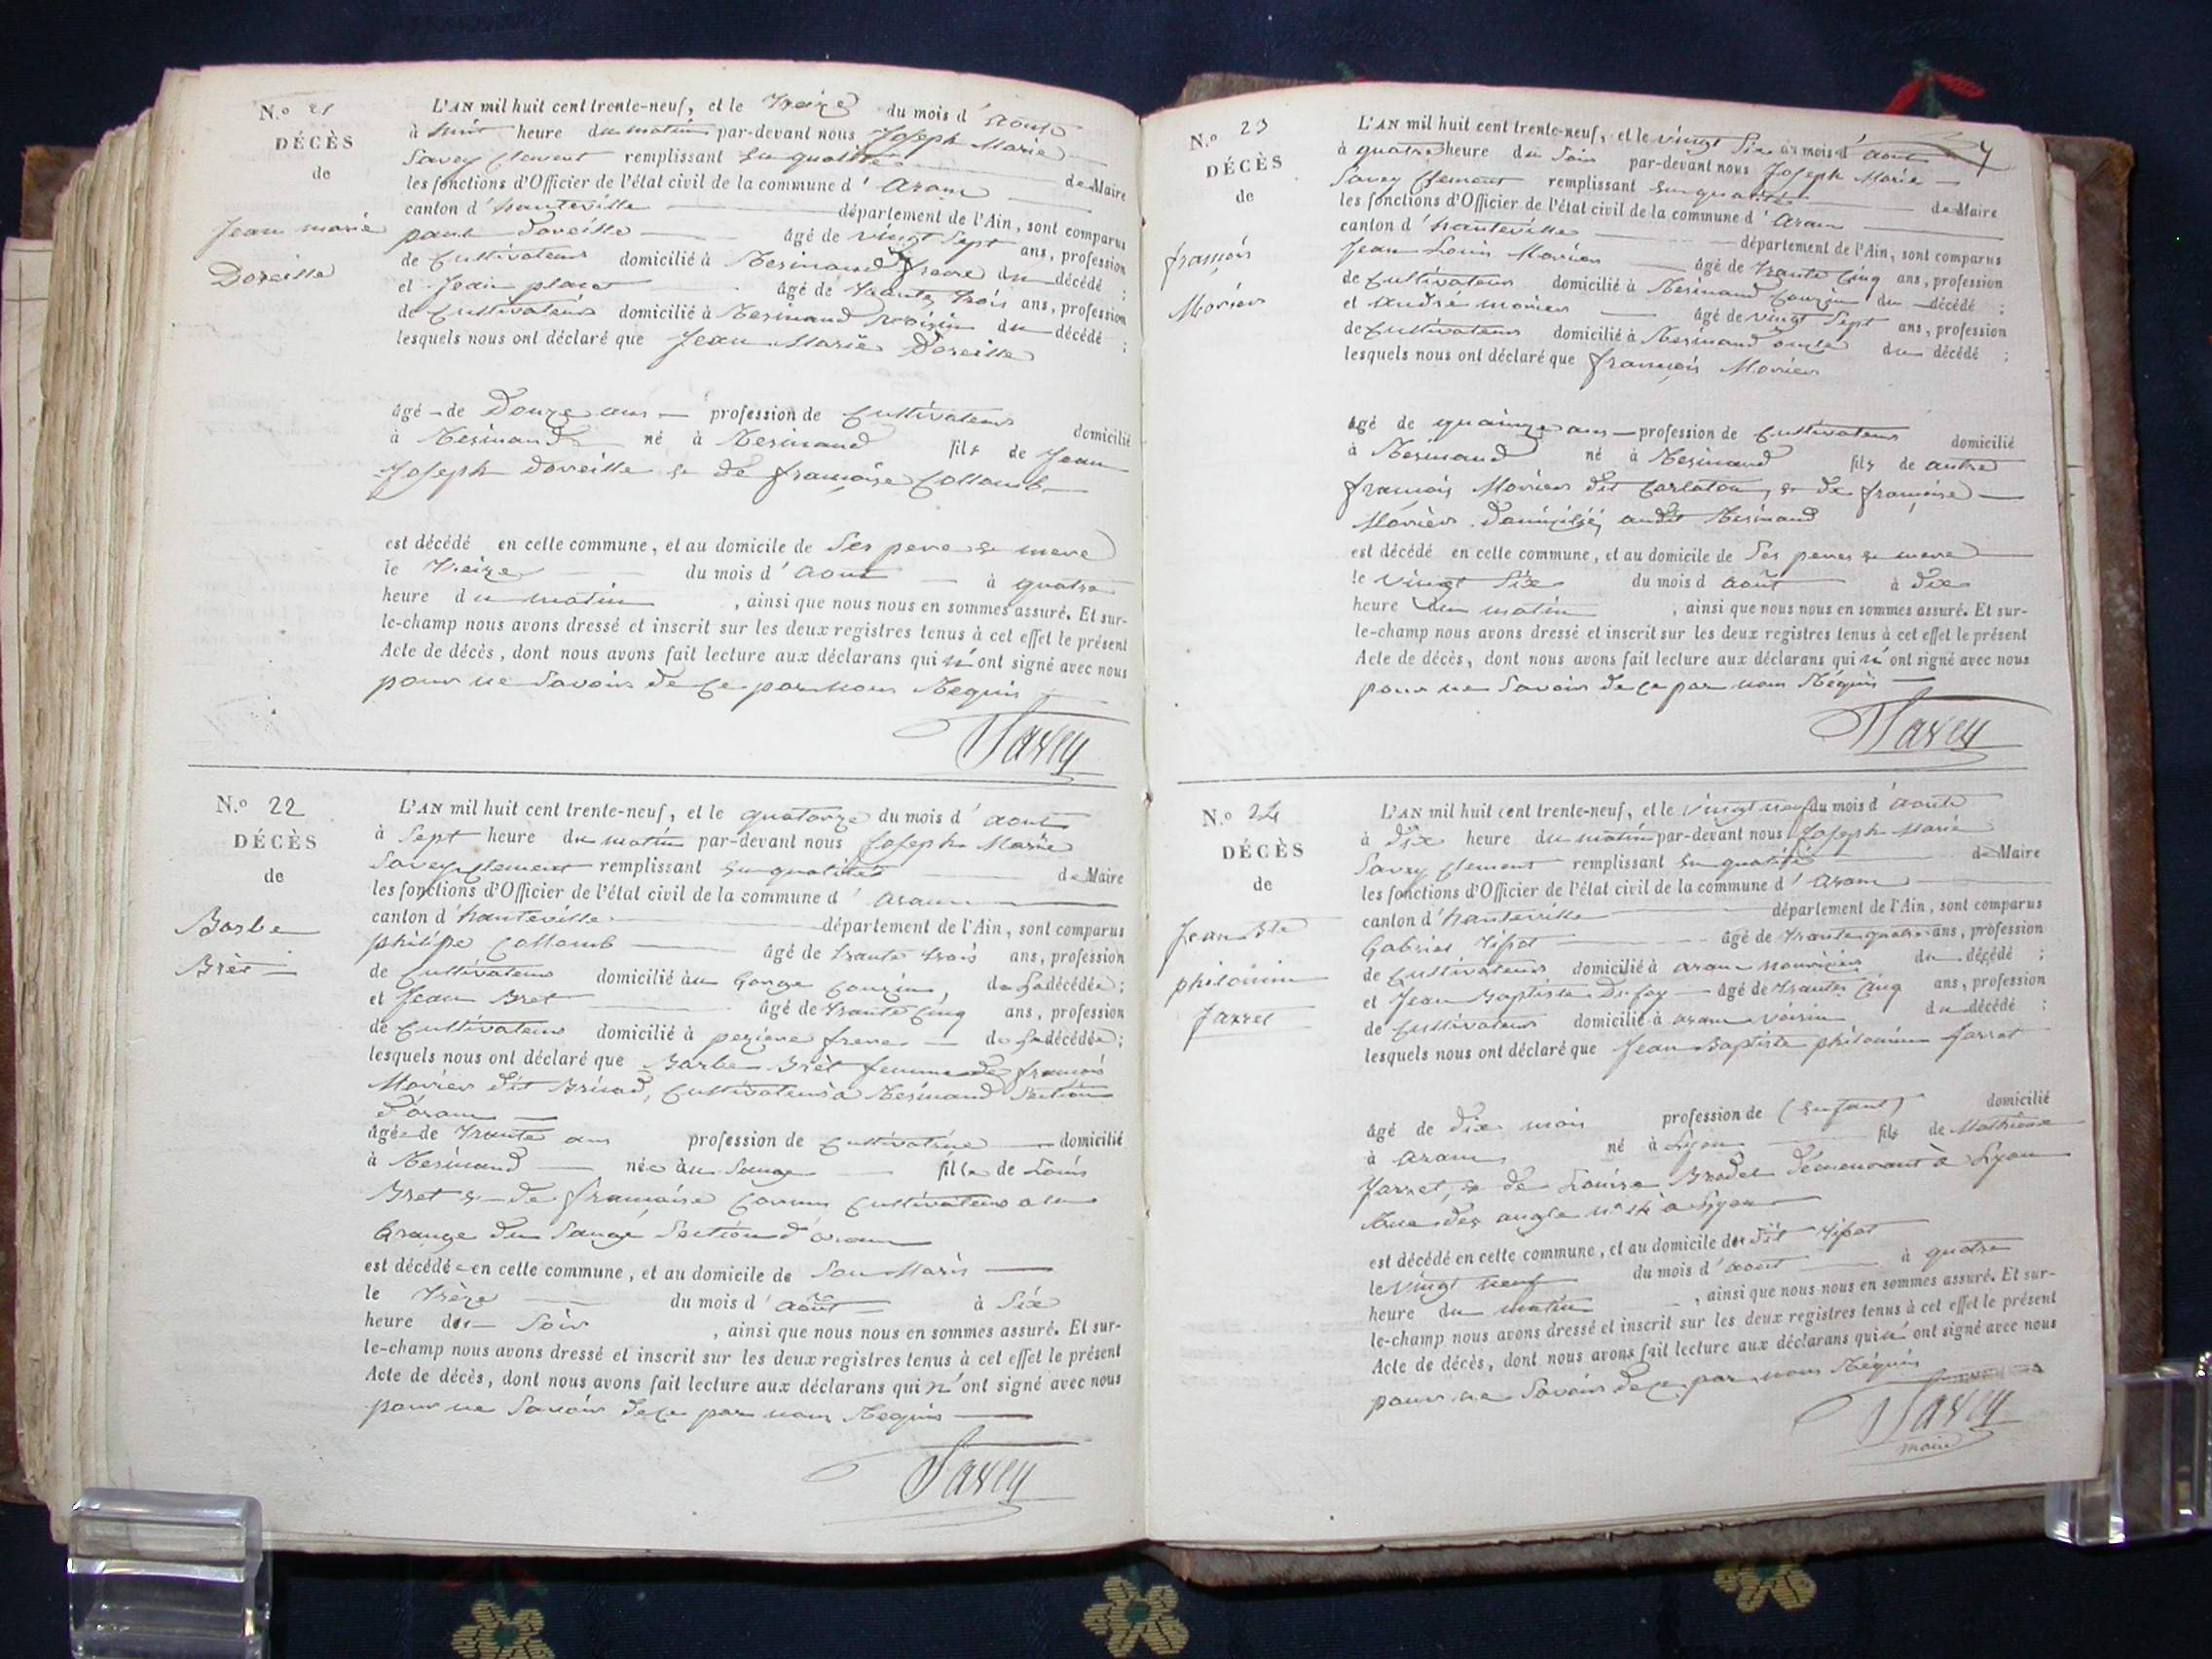 N.o 21
DÉCÈS
de
Jean marie
Doreille
L'AN mil huit cent trente-neuf, et le Treize du mois d' Aout
à huit heure du matin par-devant nous Joseph Marie
Savey Clement remplissant en qualité de Maire
les fonctions d'Officier de l'état civil de la commune d' aranc
canton d' hauteville département de l'Ain, sont comparus
paul Doreille âgé de vingt Sept ans, profession
de Cultivateur domicilié à Resinand frere du décédé ;
et Jean placet âgé de trante trois ans, profession
de Cultivateur domicilié à Resinand voisin du décédé ;
lesquels nous ont déclaré que Jean Marie Doreille
âgé de Douze ans profession de Cultivateur domicilié
à Resinand né à Resinand fils de Jean
Joseph Doreille & de françoise Collomb
est décédé en cette commune, et au domicile de Ses pere & mere
le Treize du mois d' aout à quatre
heure du matin , ainsi que nous nous en sommes assuré. Et sur-
le-champ nous avons dressé et inscrit sur les deux registres tenus à cet effet le présent
Acte de décès, dont nous avons fait lecture aux déclarans qui n' ont signé avec nous
pour ne Savoir de ce par nous Requis
Savey
N.o 22
DÉCÈS
de
Barbe
Brêt
L'AN mil huit cent trente-neuf, et le quatorze du mois d' aout
à Sept heure du matin par-devant nous Joseph Marie
Savey Clement remplissant en qualité de Maire
les fonctions d'Officier de l'état civil de la commune d' aranc
canton d' hauteville département de l'Ain, sont comparus
philipe Collomb âgé de trante trois ans, profession
de Cultivateur domicilié au Gorge Couzin, de La décédée ;
et Jean Bret âgé de trante Cinq ans, profession
de Cultivateur domicilié à peziere frere de La décédée ;
lesquels nous ont déclaré que Barbe Brêt femme de françois
Morier dit Brinad, Cultivateur à Resinand Section
d'aranc
âgée de Trante ans profession de Cultivatrice domicilié
à Resinand née au Sauge fille de Louis
Bret & de françoise Cultivateur a la
Grange du Sauge Section d'aranc
est décédée en cette commune, et au domicile de Son Maris
le Trèze du mois d' août à Six
heure du Soir , ainsi que nous nous en sommes assuré. Et sur-
le-champ nous avons dressé et inscrit sur les deux registres tenus à cet effet le présent
Acte de décès, dont nous avons fait lecture aux déclarans qui n' ont signé avec nous
pour ne Savoir de ce par nous Requis
Savey
7
N.o 23
DÉCÈS
de
françois
Morier
L'AN mil huit cent trente-neuf, et le vingt Six du mois d' aout
à quatre heure du Soir par-devant nous Joseph Marie
Savey Clement remplissant en qualité de Maire
les fonctions d'Officier de l'état civil de la commune d' aranc
canton d' hauteville département de l'Ain, sont comparus
Jean Louis Morier âgé de trante Cinq ans, profession
de Cultivateur domicilié à Resinand Couzin du décédé ;
et andré morier âgé de vingt Sept ans, profession
de Cultivateur domicilié à Resinand oncle du décédé ;
lesquels nous ont déclaré que françois Morier
âgé de quainze ans profession de Cultivateur domicilié
à Resinand né à Resinand fils de autre
françois Morier dit Carlaton, & de françoise
Morier Domicilié audit Resinand
est décédé en cette commune, et au domicile de Ses peres & mere
le vingt Six du mois d août à dix
heure du matin , ainsi que nous nous en sommes assuré. Et sur-
le-champ nous avons dressé et inscrit sur les deux registres tenus à cet effet le présent
Acte de décès, dont nous avons fait lecture aux déclarans qui n' ont signé avec nous
pour ne Savoir de ce par nous Réquis
Savey
N.o 24
DÉCÈS
de
Jean Bte
philomin
Jarret
L'AN mil huit cent trente-neuf, et le vingt neuf du mois d' aout
à dix heure du matin par-devant nous Joseph Marie
Savey Clement remplissant en qualité de Maire
les fonctions d'Officier de l'état civil de la commune d' aranc
canton d' hauteville département de l'Ain, sont comparus
Gabriel Tifot âgé de trante quatre ans, profession
de Cultivateur domicilié à aranc nourricier du décédé ;
et Jean Baptiste Dufay âgé de trante Cinq ans, profession
de Cultivateur domicilié à aranc voisin du décédé ;
lesquels nous ont déclaré que Jean Baptiste philomin Jarret
âgé de dix mois profession de (enfant) domicilié
à aranc né à Lyon fils de Mathieu
Jarret, & de Louise Brodet demeurant à Lyon
Rue des angle n° 14 à Lyon
est décédé en cette commune, et au domicile du dit Tifot
le vingt neuf du mois d' aout à quatre
heure du matin , ainsi que nous nous en sommes assuré. Et sur-
le-champ nous avons dressé et inscrit sur les deux registres tenus à cet effet le présent
Acte de décès, dont nous avons fait lecture aux déclarans qui n' ont signé avec nous
pour ne Savoir de ce par nous Réquis
Savey
maire